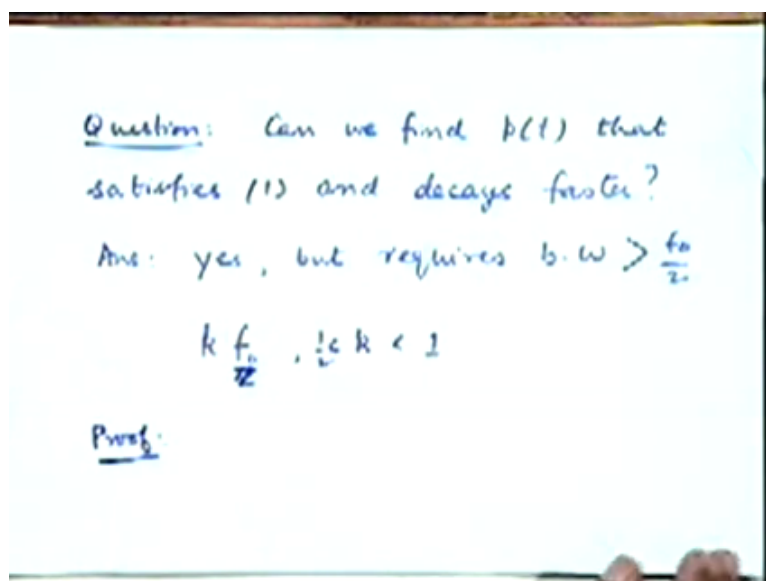 Question: Can we find p(t) that
satisfies (1) and decays faster?
Ans: yes, but requires b.w > f₀/2
k f₀, ½ < k < 1
Proof: